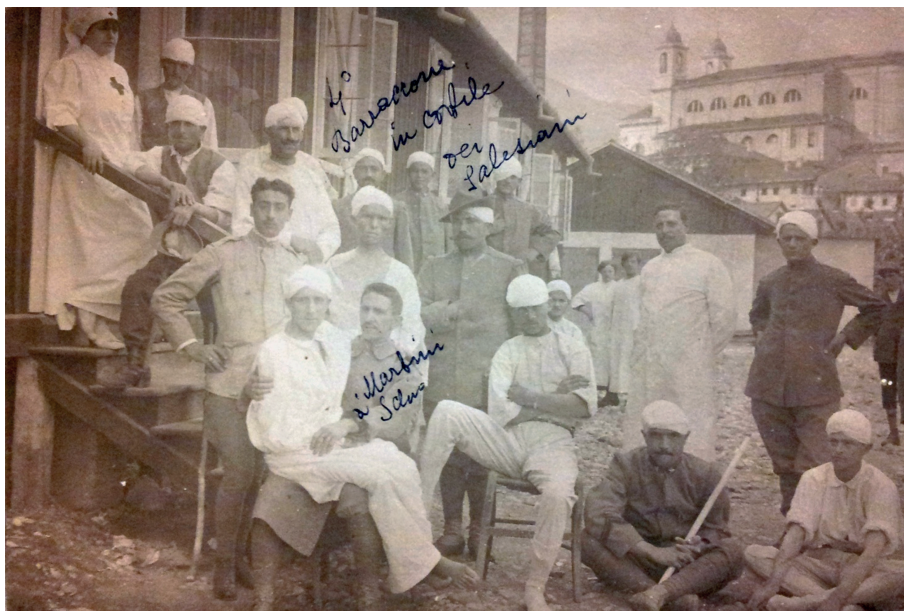 4°
Barraccone
in cortile
dei
Salesiani
Martini